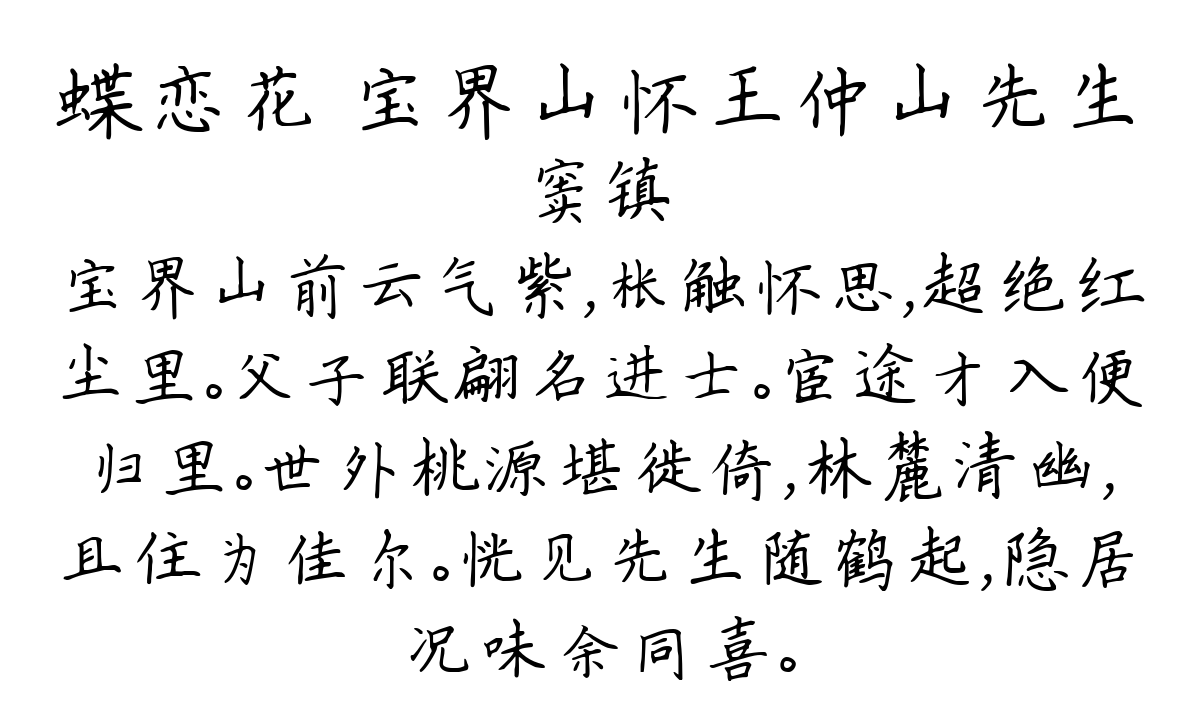 蝶恋花 宝界山怀王仲山先生
窦镇
宝界山前云气紫,枨触怀思,超绝红
尘里。父子联翩名进士。宦途才入便
归里。世外桃源堪徙倚,林麓清幽,
且住为佳尔。恍见先生随鹤起,隐居
况味余同喜。